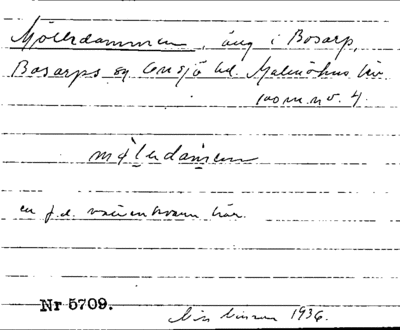 Möllerdammen, äng i Bosarp,
Bosarps sn Onsjö hd. Malmöhus län
100 m n v. 4.
en f.d. vattenkvarn här.
Nr 5709.
1936.